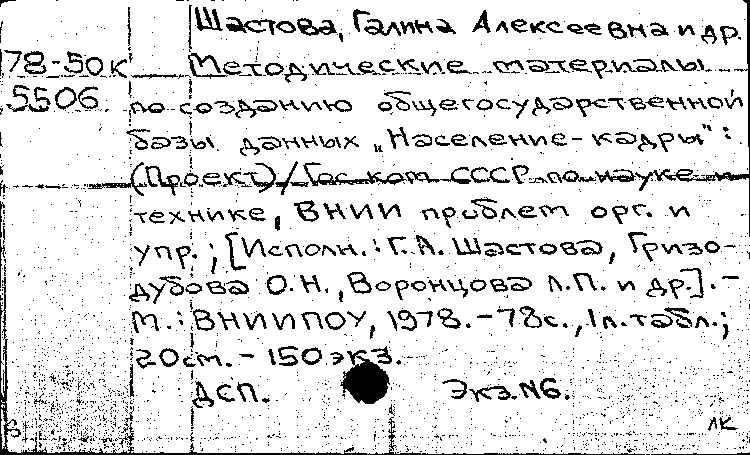 Шастова, Галина Алексеевна и др.
78-50к Методические материалы
5506. по созданию общегосударственной
базы данных „Население-кадры":
(Проект)/Гос. ком. СССР по науке и
технике, ВНИИ проблем орг. и
упр.; [Исполн.: Г.А. Шастова, Гризо-
дубова О.Н., Воронцова Л.П. и др.].-
М.: ВНИИПОУ, 1978.-78с., 1л.табл.;
20см.-150экз.
ДСП. Экз.N6.
ЛК